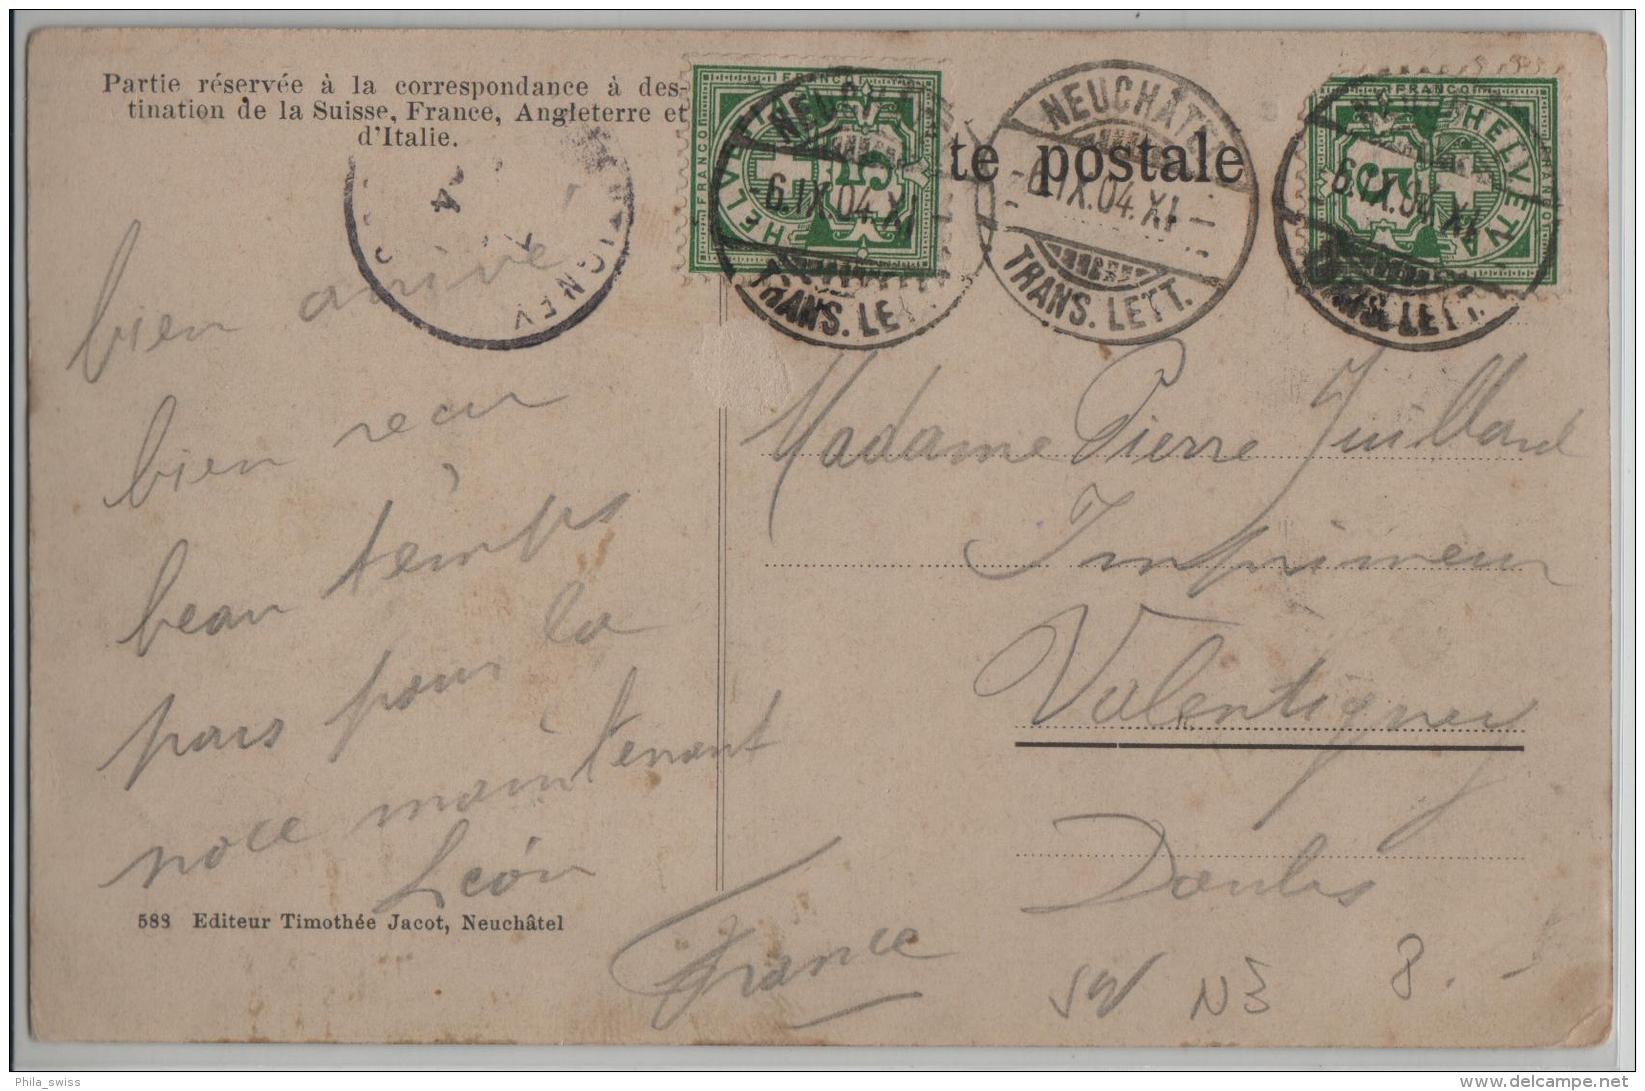 Partie réservée à la correspondance à des-
tination de la Suisse, France, Angleterre et
d'Italie.
te postale
FRANCO
FRANCO
HELVE
5
NEUCHÂ
6.IX.04.XI
TRANS. LE
NEUCHÂT
6.IX.04.XI
TRANS. LETT.
FRANCO
HELVETIA
5
6.IX.04.XI
TRANS. LETT.
TIGNEY
bien arrivé
bien recu
beau temps
pars pour la
noce maintenant
Léon
Madame Pierre Juillard
Imprimeur
Valentigney
Doubs
France
588 Editeur Timothée Jacot, Neuchâtel
SW NE 8.-
Phila_swiss
delcampe.net